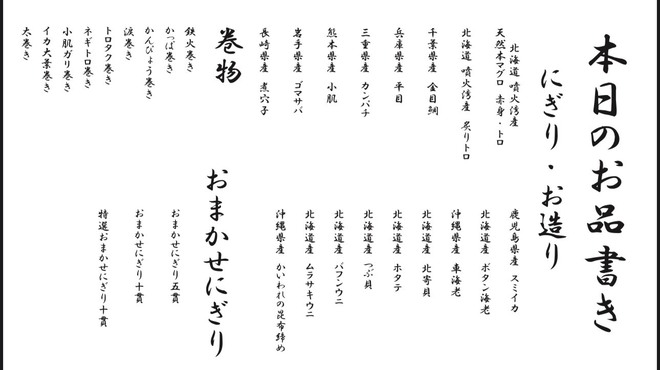 本日のお品書き
にぎり・お造り
北海道 噴火湾産
天然本マグロ 赤身・トロ
北海道 噴火湾産 炙りトロ
千葉県産 金目鯛
兵庫県産 平目
三重県産 カンパチ
熊本県産 小肌
岩手県産 ゴマサバ
長崎県産 煮穴子
鹿児島県産 スミイカ
北海道産 ボタン海老
沖縄県産 車海老
北海道産 北寄貝
北海道産 ホタテ
北海道産 つぶ貝
北海道産 バフンウニ
北海道産 ムラサキウニ
沖縄県産 かいわれの昆布締め
巻物
鉄火巻き
かっぱ巻き
かんぴょう巻き
涙巻き
トロタク巻き
ネギトロ巻き
小肌ガリ巻き
イカ大葉巻き
太巻き
おまかせにぎり
おまかせにぎり五貫
おまかせにぎり十貫
特選おまかせにぎり十貫